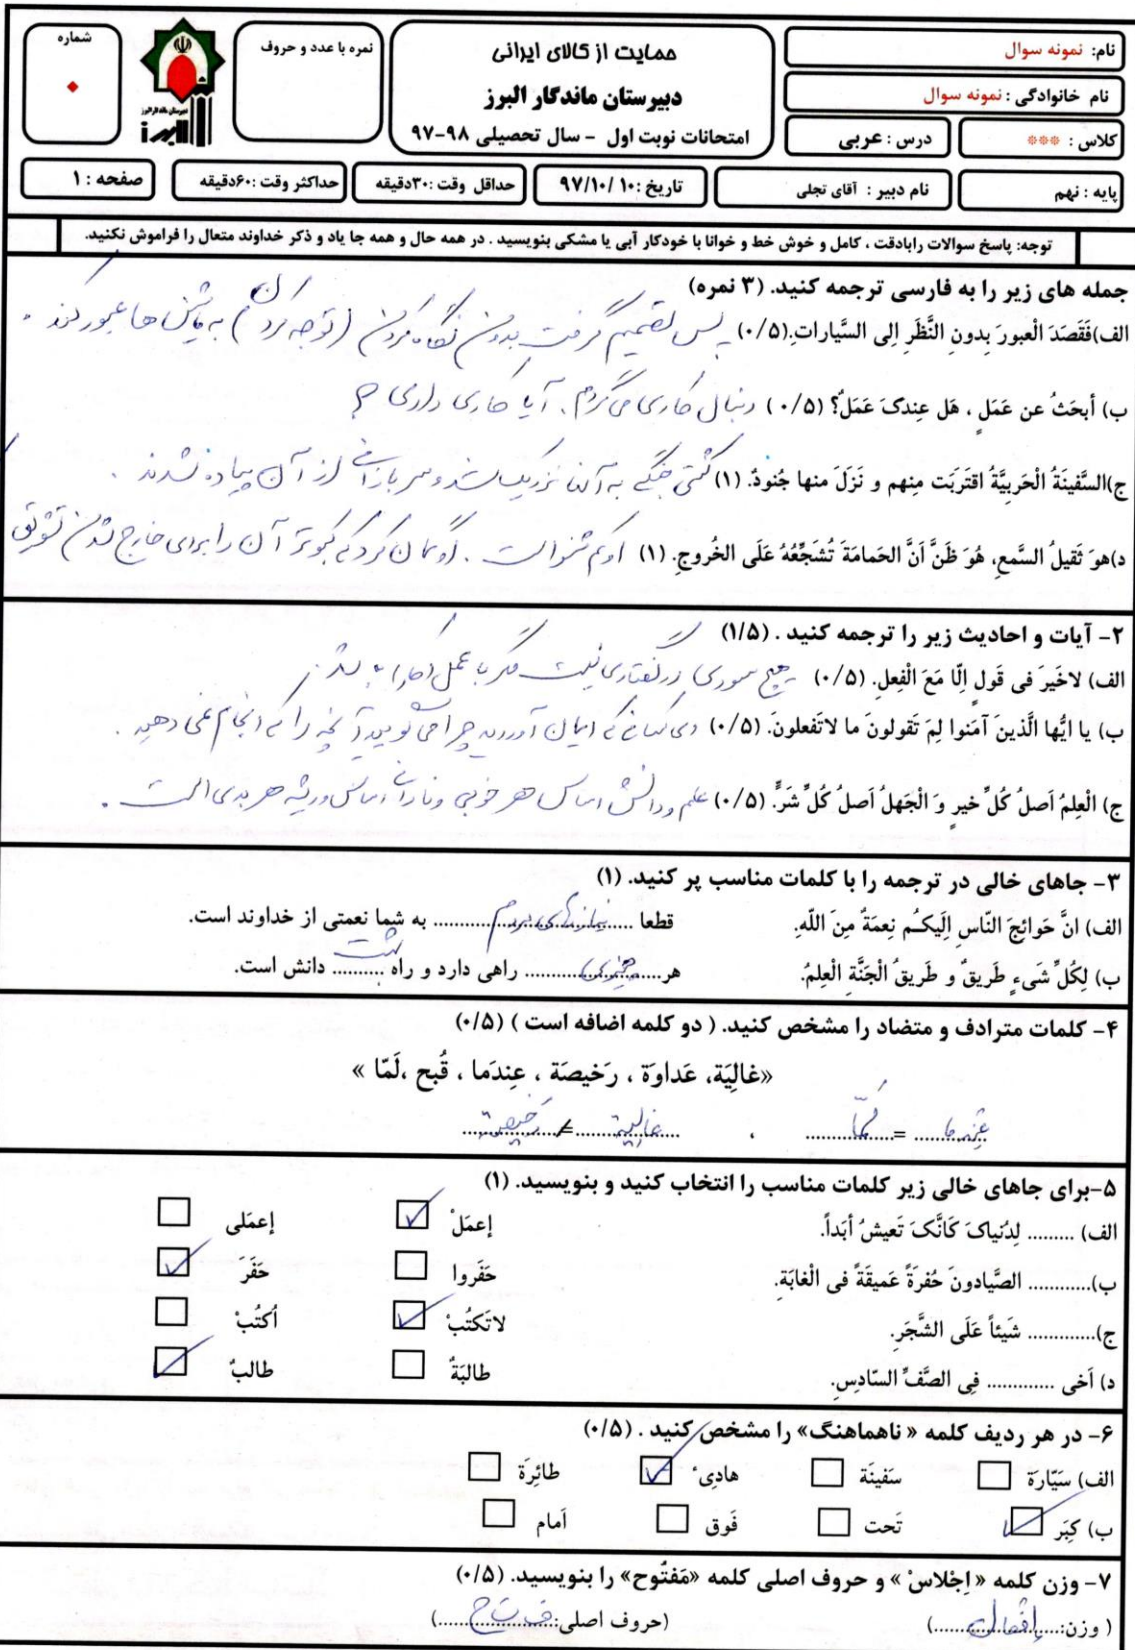 نام: نمونه سوال
نام خانوادگی : نمونه سوال
کلاس : ***
درس : عربی
پایه : نهم
نام دبیر : آقای تجلی
حمایت از کالای ایرانی
دبیرستان ماندگار البرز
امتحانات نوبت اول - سال تحصیلی ۹۸-۹۷
تاریخ : ۹۷/۱۰/۱۰
حداقل وقت :۳۰دقیقه
حداکثر وقت :۶۰دقیقه
صفحه : ۱
نمره با عدد و حروف
دبیرستان ماندگار البرز
البرز
شماره
توجه: پاسخ سوالات رابادقت ، کامل و خوش خط و خوانا با خودکار آبی یا مشکی بنویسید . در همه حال و همه جا یاد و ذکر خداوند متعال را فراموش نکنید.
جمله های زیر را به فارسی ترجمه کنید. (۳ نمره)
الف)فَقَصَدَ الْعبورَ بِدونِ النَّظَرِ اِلی السَّیارات.ِ(۰/۵) پس تصمیم گرفت بدون نگاه کردن (توجه کردن) به ماشین ها عبور کند .
ب) أبحَثُ عن عَمَلٍ ، هَل عِندکَ عَمَلٌ؟ (۰/۵) دنبال کاری می گردم . آیا کاری داری ؟
ج)السَّفینَةُ الْحَربیَّةُ اقتَرَبَت مِنهم و نَزَلَ منها جُنودٌ. (۱) کشتی جنگی به آنها نزدیک شد و سربازانی از آن پیاده شدند .
د)هوَ ثَقیلُ السَّمعِ، هُوَ ظَنَّ اَنَّ الحَمامَةَ تُشَجِّعُهُ عَلَی الخُروجِ. (۱) او کم شنواست . او گمان کرد که کبوتر آن را برای خارج شدن تشویق
۲- آیات و احادیث زیر را ترجمه کنید . (۱/۵)
الف) لاخَیرَ فی قَولٍ اِلّا مَعَ الْفِعلِ. (۰/۵) هیچ سودی در گفتاری نیست مگر با عمل
ب) یا ایُّها الَّذینَ آمَنوا لِمَ تَقولونَ ما لاتَفعلونَ. (۰/۵) ای کسانی که ایمان آوردید چرا می گویید آنچه را که انجام نمی دهید .
ج) الْعِلمُ اَصلُ کُلِّ خیرٍ وَ الْجَهلُ اَصلُ کُلِّ شَرٍّ. (۰/۵) علم و دانش اساس هر خوبی و نادانی اساس و ریشه هر بدی است .
۳- جاهای خالی در ترجمه را با کلمات مناسب پر کنید. (۱)
الف) انَّ حَوائِجَ النّاسِ اِلَیکُم نِعمَةٌ مِنَ اللّهِ. قطعا ......نیازهای مردم...... به شما نعمتی از خداوند است.
ب) لِکُلِّ شَیءٍ طَریقٌ و طَریقُ الْجَنَّةِ الْعِلمُ. هر......چیزی...... راهی دارد و راه ...بهشت... دانش است.
۴- کلمات مترادف و متضاد را مشخص کنید. ( دو کلمه اضافه است ) (۰/۵)
«غالِیَة، عَداوَة ، رَخیصَة ، عِندَما ، قُبح ،لَمّا »
عِندَما = لَمّا ، غالیة ≠ رَخیصة
۵-برای جاهای خالی زیر کلمات مناسب را انتخاب کنید و بنویسید. (۱)
الف) ......... لِدُنیاکَ کَاَنَّکَ تَعیشُ أبَداً. إعمَلْ ✓ إعمَلی
ب)............ الصَّیادونَ حُفرَةً عَمیقَةً فی الْغابَةِ. حَفَروا حَفَرَ ✓
ج)............ شَیئاً عَلَی الشَّجَرِ. لاتَکتُبْ ✓ اُکتُبْ
د) اَخی ............ فِی الصَّفِّ السّادِسِ. طالبَةٌ طالبٌ ✓
۶- در هر ردیف کلمه « ناهماهنگ» را مشخص کنید . (۰/۵)
الف) سَیّارَة سَفینَة هادِیء ✓ طائِرَة
ب) کِبَر ✓ تَحت فَوق اَمام
۷- وزن کلمه « اِجْلاسْ » و حروف اصلی کلمه «مَفتُوح» را بنویسید. (۰/۵)
( وزن:......إفعال......) (حروف اصلی:......ف ت ح......)